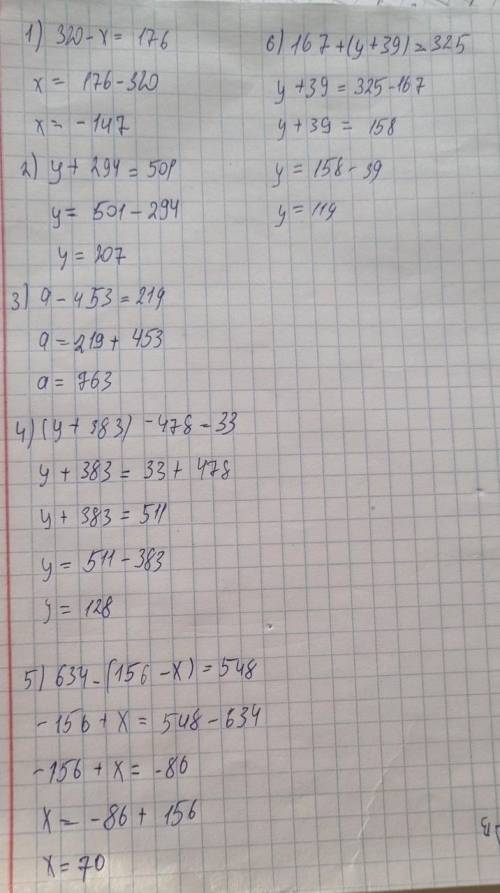 1) 320 - x = 176
x = 176 - 320
x = - 147
2) y + 294 = 501
y = 501 - 294
y = 207
3) a - 453 = 219
a = 219 + 453
a = 763
4) (y + 383) - 478 = 33
y + 383 = 33 + 478
y + 383 = 511
y = 511 - 383
y = 128
5) 634 - (156 - x) = 548
- 156 + x = 548 - 634
- 156 + x = -86
x = -86 + 156
x = 70
6) 167 + (y + 39) = 325
y + 39 = 325 - 167
y + 39 = 158
y = 158 - 39
y = 119